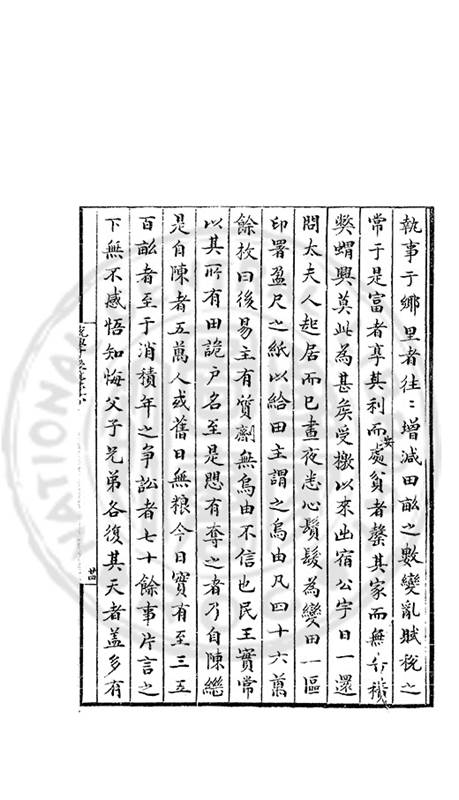 執事于鄉里者往〻增減田畝之數變亂賦稅之
常于是富者享其利而處貧者罄其家而無
安
弊蝟興莫此為甚矣受檄以來出宿公宇日一還
問太夫人起居而已晝夜悉心鬢髮為變田一區
印署盈尺之紙以給田主謂之烏由凡四十六萬
餘枚曰後易主有質劑無烏由不信也民王實常
以其所有田詭戶名至是思有奪之者乃自陳繼
是自陳者五萬人或舊日無粮今日實有至三五
百畝者至于消積年之爭訟者七十餘事片言之
下無不感悟知悔父子兄弟各復其天者蓋多有
廿四